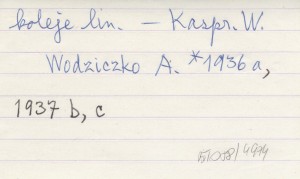 koleje lin. – Kaspr. W.
Wodziczko A. *1936 a,
1937 b, c
51058/4974